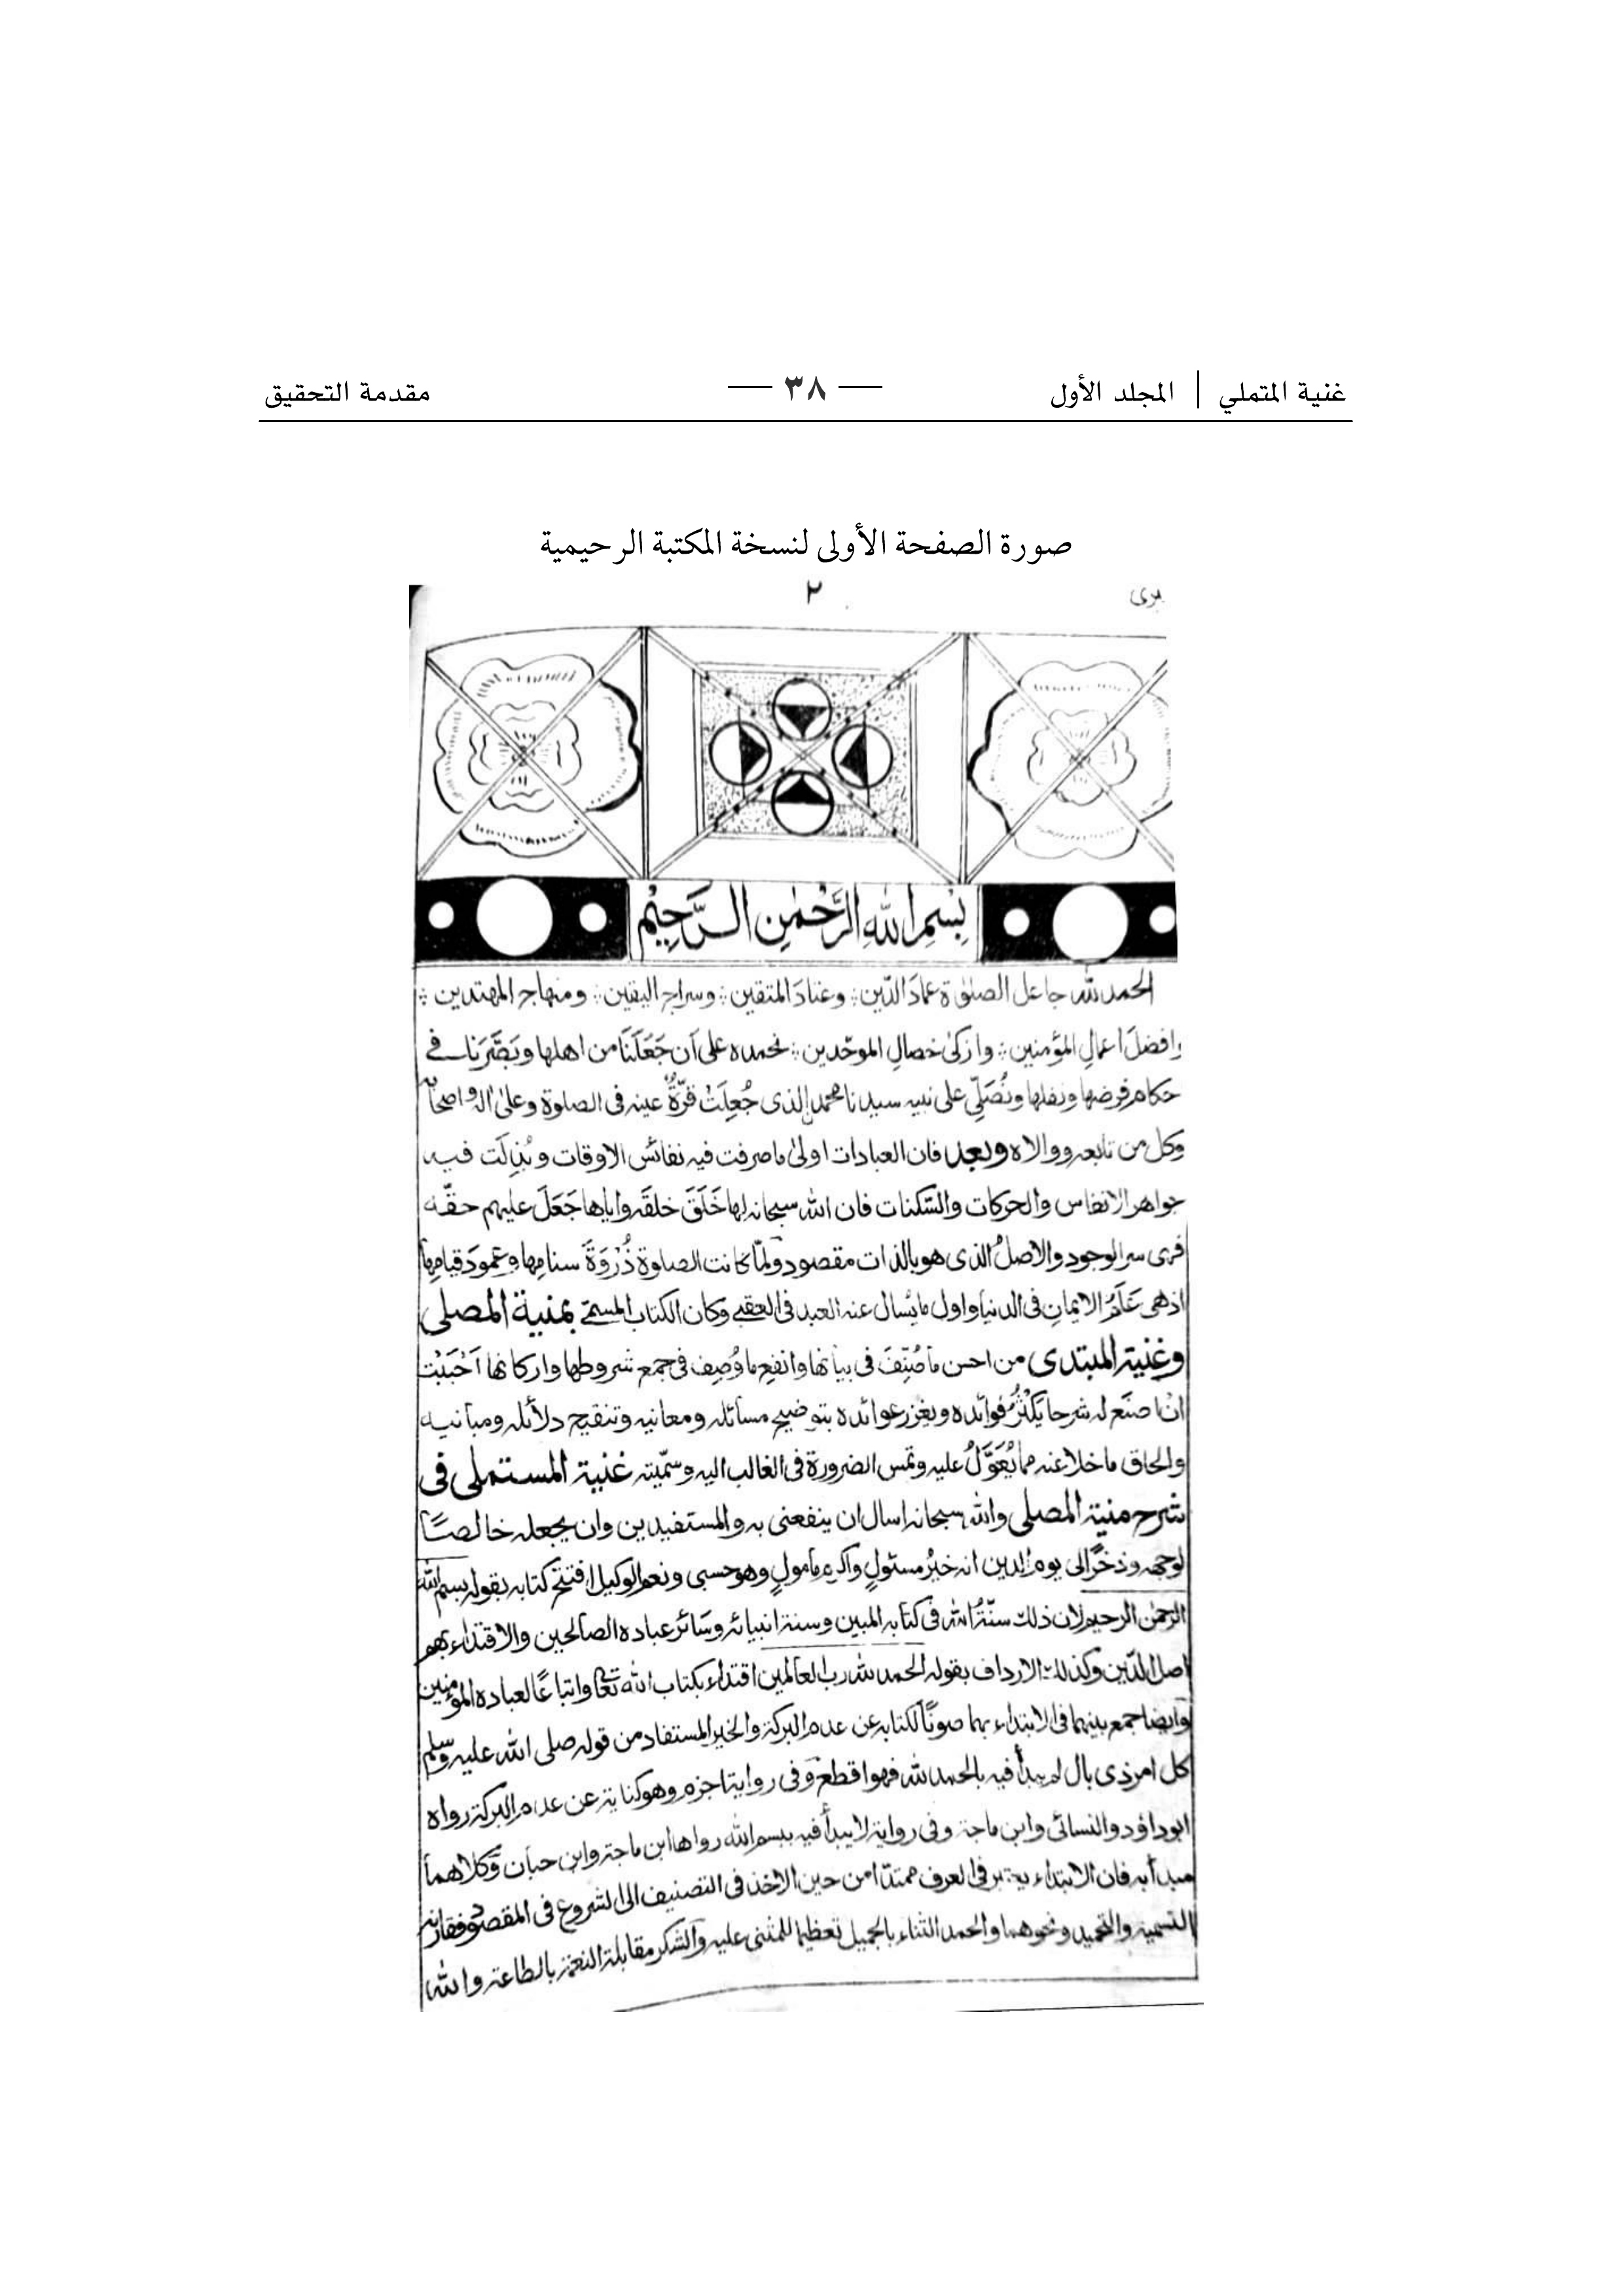 غنية المتملي | المجلد الأول — ٣٨ — مقدمة التحقيق
صورة الصفحة الأولى لنسخة المكتبة الرحيمية
بری ٢
بِسْمِ اللهِ الرَّحْمٰنِ الرَّحِيْمِ
الحمد لله جاعل الصلوٰة عمادَ الدّين ؛ وعتادَ المتقين ؛ وسراج اليقين ؛ ومنهاج المهتدين ؛
وافضلَ اعمالِ المؤمنين ؛ وازكىٰ خصالِ الموحّدين ؛ نحمده على اَن جَعَلَنَا من اهلها وبَصَّرَنا في
حكام فرضها ونفلها ونُصَلِّي على نبيه سيدنا محمد الذى جُعِلَتْ قرّةُ عينه فى الصلوة وعلىٰ اٰله واصحا
وكل من تابعه ووالاه وبعد فان العبادات اولىٰ ما صرفت فيه نفائس الاوقات وبُذِلَت فيه
جواهر الانفاس والحركات والسَّكنات فان الله سبحانه لها خَلَقَ خلقَه واياها جَعَلَ عليهم حقّه
فهى سر الوجود والاصلُ الذى هو بالذات مقصود ولمّا كانت الصلوة ذُرْوَةَ سنامِها وعمودَ قيامِها
اذ هى عَلَمُ الايمانِ فى الدنيا واول ما يُسال عنه العبد فى العقبى وكان الكتاب المسمّى بمنية المصلى
وغنية المبتدى من احسن ما صُنِّفَ فى بيانها وانفعِ ما وُصِف فى جمع شروطها واركانها اَحْبَبْت
ان اصنَع له شرحا يَكْثُرُ فوائده ويغزر عوائده بتوضيح مسائله ومعانيه وتنقيح دلائله ومبانيه
والحاق ما خلا عنه مما يُعَوَّلُ عليه وتمس الضرورة فى الغالب اليه وسمّيته غنية المستملى فى
شرح منية المصلى والله سبحانه اسال ان ينفعنى به والمستفيدين وان يجعله خالصًا
لوجهه وذخرًا الى يوم الدين انه خيرُ مسئولٍ واكرم مامولٍ وهو حسبى ونعم الوكيل افتتح كتابه بقوله بسم الله
الرحمٰن الرحيم لان ذلك سنّةُ الله فى كتابه المبين وسنة انبيائه وسَائر عباده الصالحين والاقتداء بهم
اصل الدّين وكذلك الارداف بقوله الحمد لله رب العالمين اقتداء بكتاب الله تعالى واتباعًا لعباده المؤمنين
وايضا جمع بينهما فى الابتداء بهما صونًا لكتابه عن عدم البركة والخير المستفاد من قوله صلى الله عليه وسلم
كل امر ذى بال لم يبدأ فيه بالحمد لله فهو اقطع وفى رواية اجزم وهو كناية عن عدم البركة رواه
ابو داؤد والنسائى وابن ماجة وفى رواية لا يبدأ فيه ببسم الله رواها ابن ماجة وابن حبان وكلاهما
مبدأ به فان الابتداء يعتبر فى العرف ممتدّا من حين الاخذ فى التصنيف الى الشروع فى المقصود فقارنه
التسمية والتحميد ونحوهما والحمد الثناء بالجميل تعظيما للمثنى عليه والشكر مقابلة النعمة بالطاعة والله